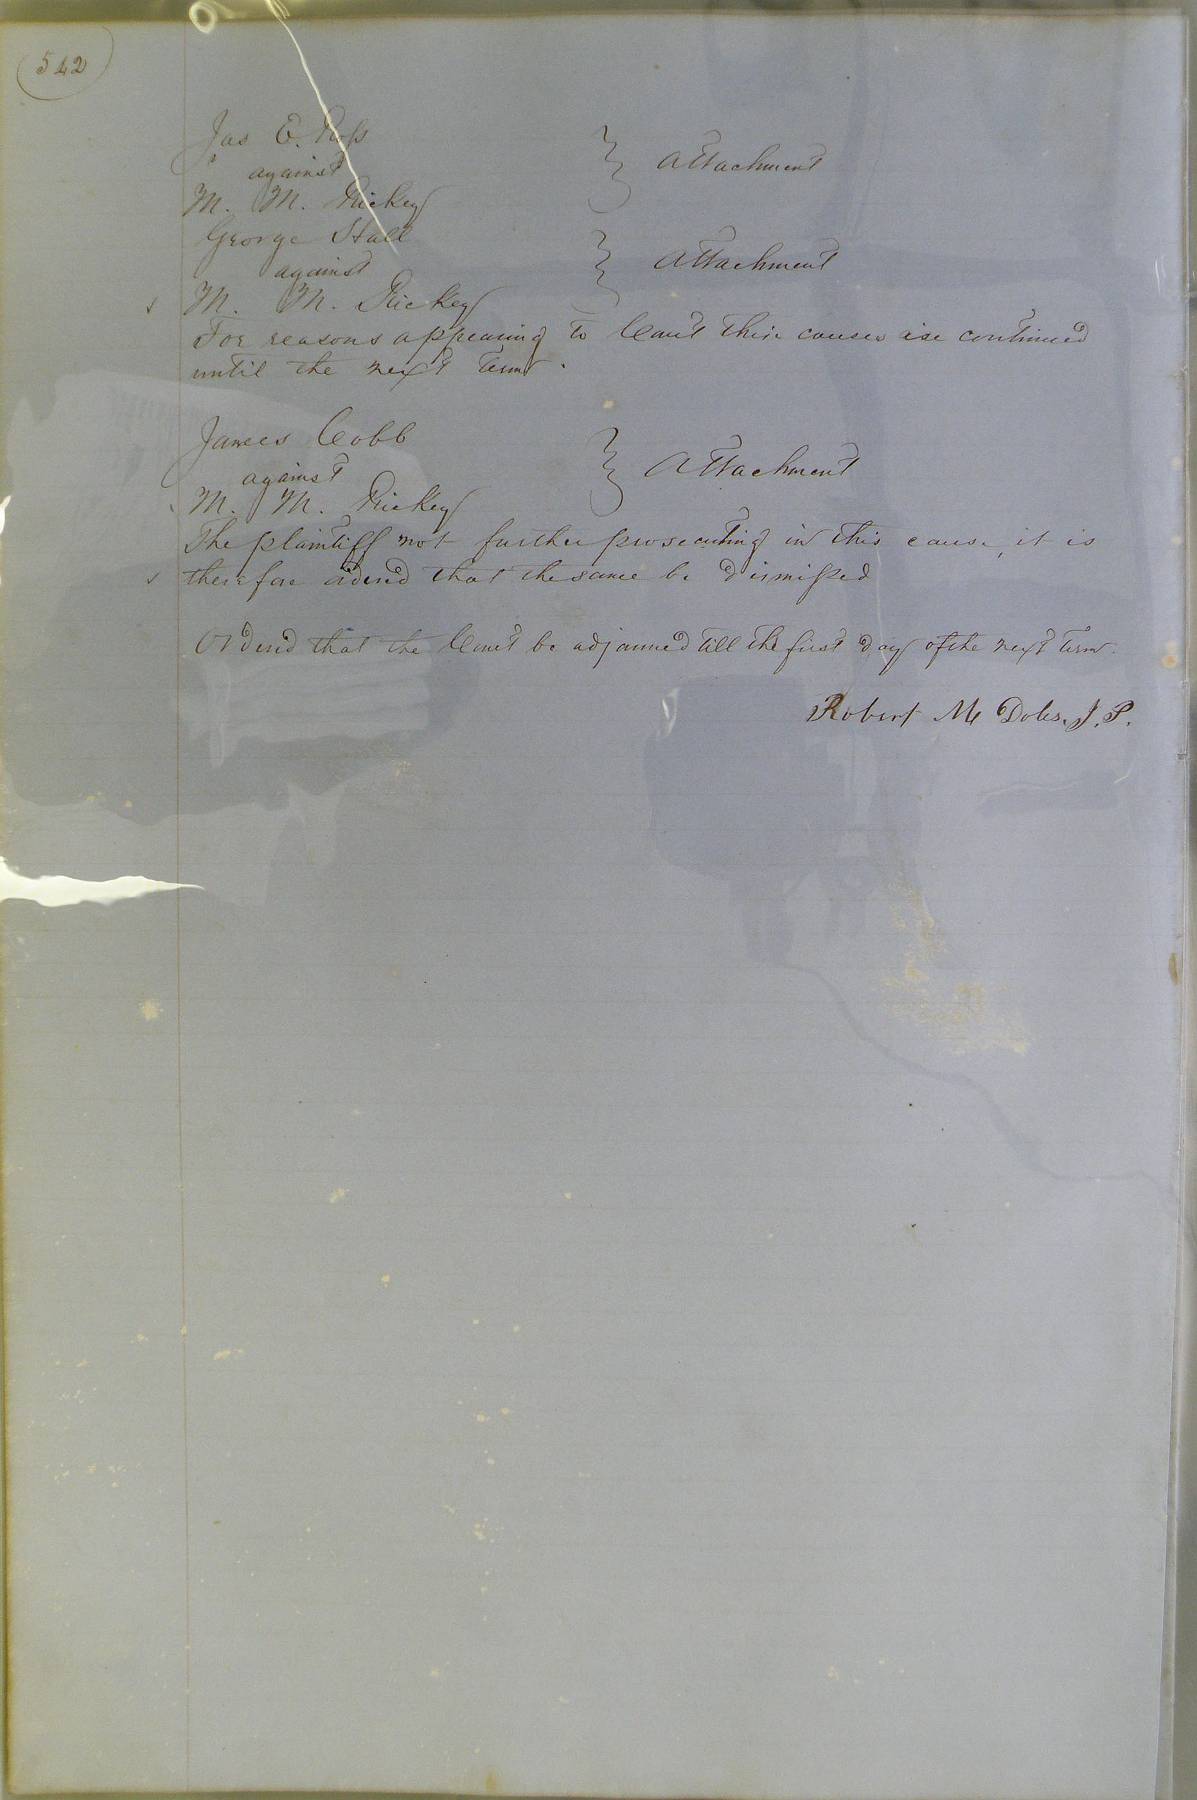 542
Jas E. Ross
against } Attachment
M. M. Rickey
George Stall
against } Attachment
M. M. Rickey
For reasons appearing to Court these causes are continued
until the next Term.
James Cobb
against } Attachment
M. M. Rickey
The plaintiff not further prosecuting in this cause, it is
therefore ordered that the same be dismissed
Ordered that the Court be adjourned till the first day of the next Term.
Robert M Doles. J. P.